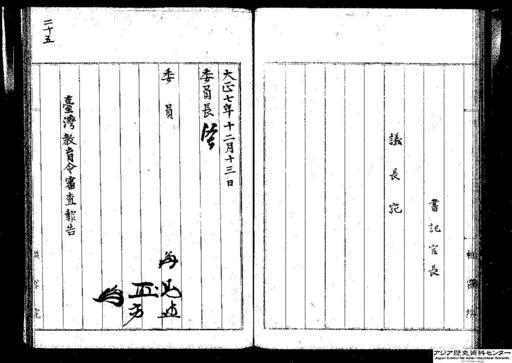 書記官長
議長宛
二十五
大正七年十二月十三日
委員長
委員
臺灣教育令審査報告
アジア歴史資料センター
Japan Center for Asian Historical Records